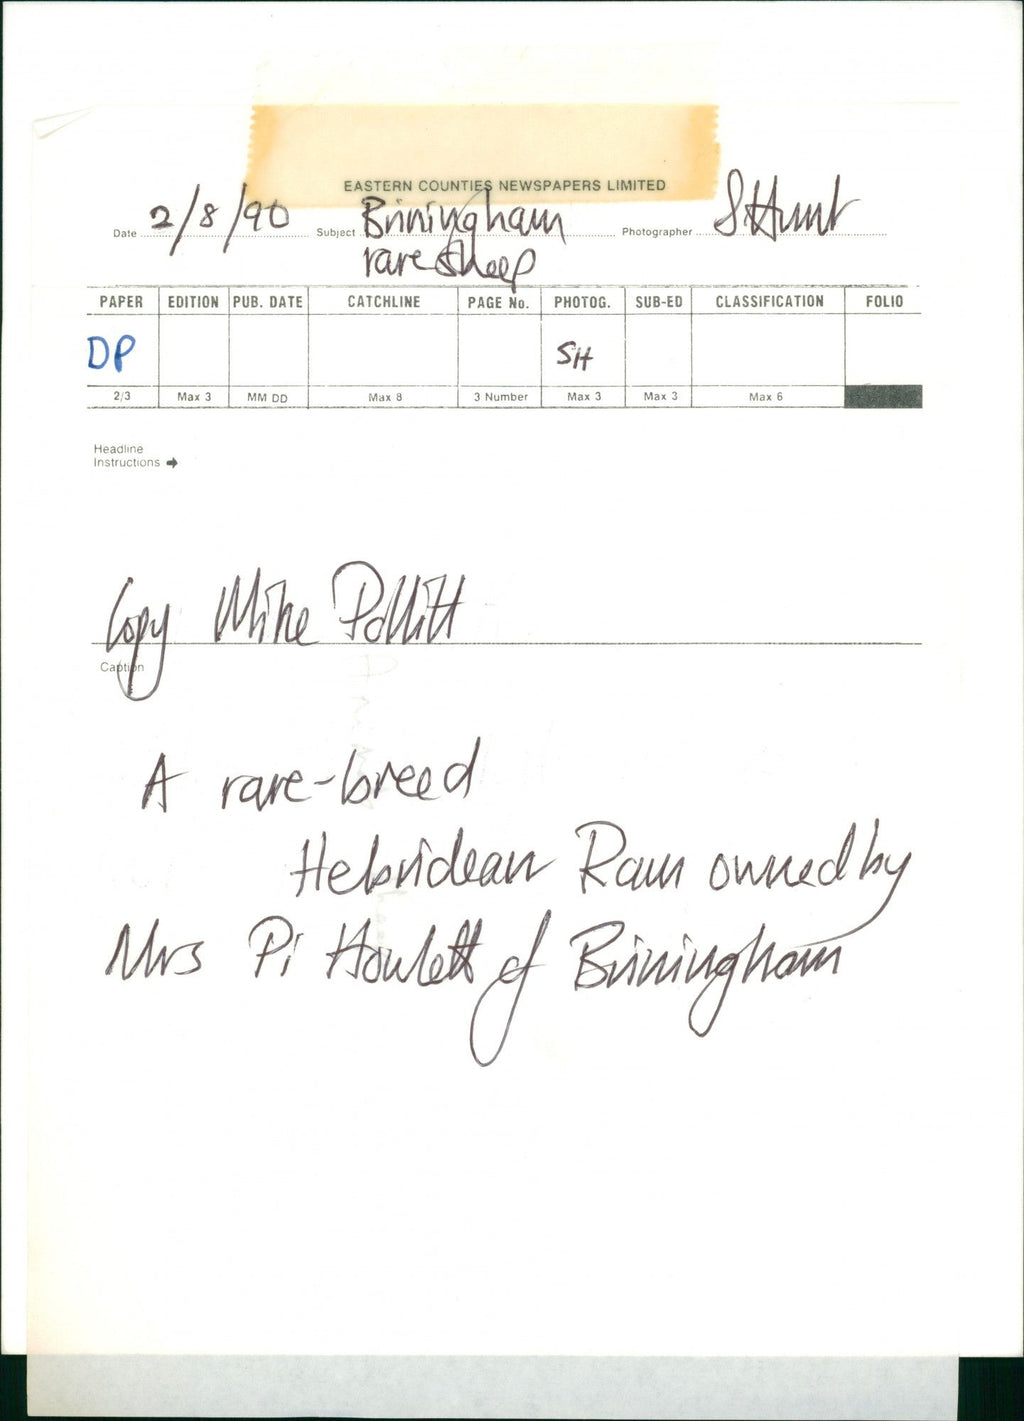 EASTERN COUNTIES NEWSPAPERS LIMITED
Date 2/8/90 Subject Briningham Photographer S. Hunt
rare sheep
PAPER EDITION PUB. DATE CATCHLINE PAGE No. PHOTOG. SUB-ED CLASSIFICATION FOLIO
DP SH
2/3 Max 3 MM DD Max 8 3 Number Max 3 Max 3 Max 6
Headline
Instructions
Copy Mike Pollitt
Caption
A rare-breed
Hebridean Ram owned by
Mrs Pi Howlett of Briningham